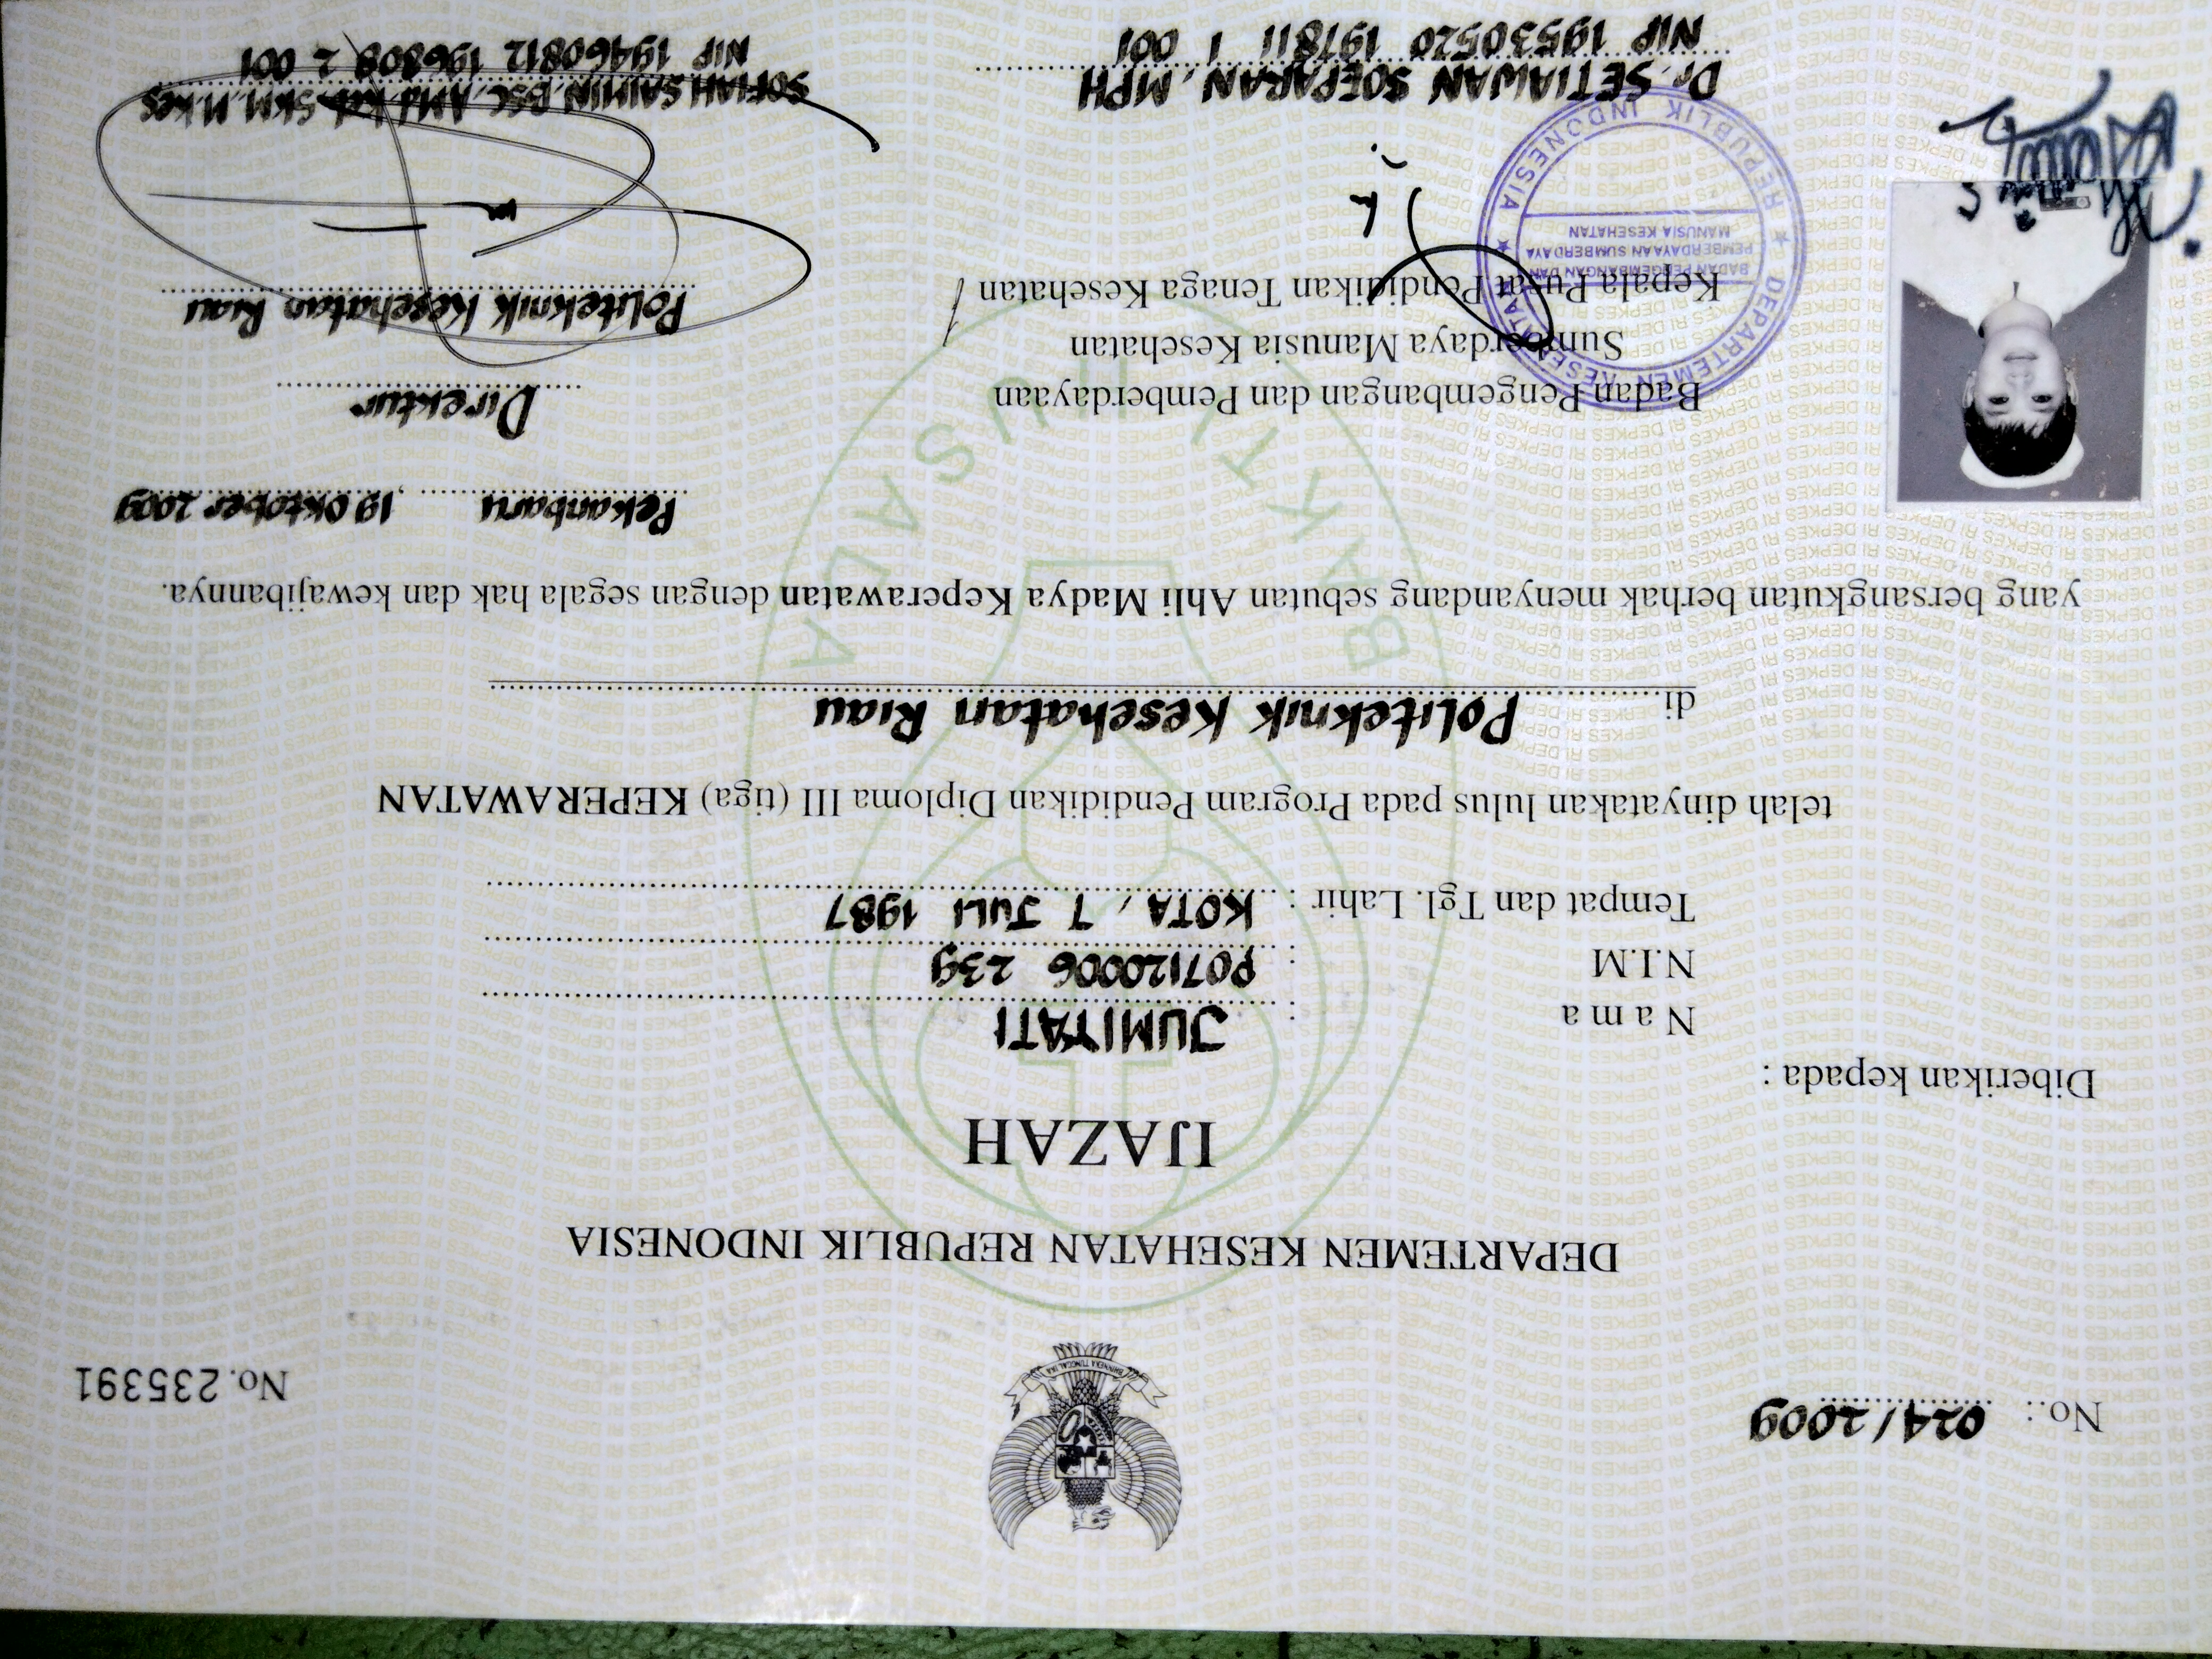 BHINNEKA TUNGGAL IKA
No.: 024/2009
No. 235391
DEPARTEMEN KESEHATAN REPUBLIK INDONESIA
IJAZAH
Diberikan kepada :
Nama : JUMIYATI
N.I.M : P07120006 239
Tempat dan Tgl. Lahir : KOTA, 7 JULI 1987
telah dinyatakan lulus pada Program Pendidikan Diploma III (tiga) KEPERAWATAN
di Politeknik Kesehatan Riau
yang bersangkutan berhak menyandang sebutan Ahli Madya Keperawatan dengan segala hak dan kewajibannya.
BAKTI HUSADA
Pekanbaru, 19 Oktober 2009
Badan Pengembangan dan Pemberdayaan
Sumberdaya Manusia Kesehatan
Kepala Pusat Pendidikan Tenaga Kesehatan
Direktur
Politeknik Kesehatan Riau
DEPARTEMEN KESEHATAN
BADAN PENGEMBANGAN DAN
PEMBERDAYAAN SUMBERDAYA
MANUSIA KESEHATAN
REPUBLIK INDONESIA
Dr. SETIAWAN SOEPARAN, MPH
NIP 19530520 197811 1 001
SOFIAH SAIMIN, BSC, AMd.Keb. SKM. M.Kes
NIP 19460812 196808 2 001